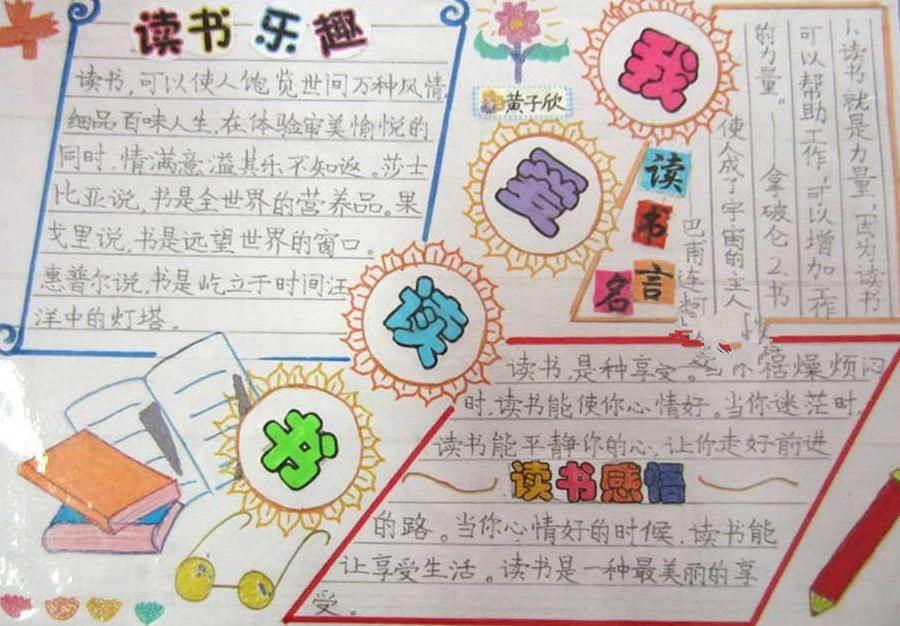 读书乐趣
读书,可以使人饱览世间万种风情,
细品百味人生,在体验审美愉悦的
同时,情满意溢其乐不知返。莎士
比亚说,书是全世界的营养品。果
戈里说,书是远望世界的窗口。
惠普尔说,书是屹立于时间汪
洋中的灯塔。
黄子欣
我
爱
读
书
读书名言
1、读书就是力量,因为读书
可以帮助工作,可以增加工作
的力量。
拿破仑2.书
使人成了宇宙的主人
巴甫连柯
读书,是种享受。当你褡燥烦闷
时,读书能使你心情好。当你迷茫时,
读书能平静你的心,让你走好前进
读书感悟
的路。当你心情好的时候,读书能
让享受生活。读书是一种最美丽的享
受。